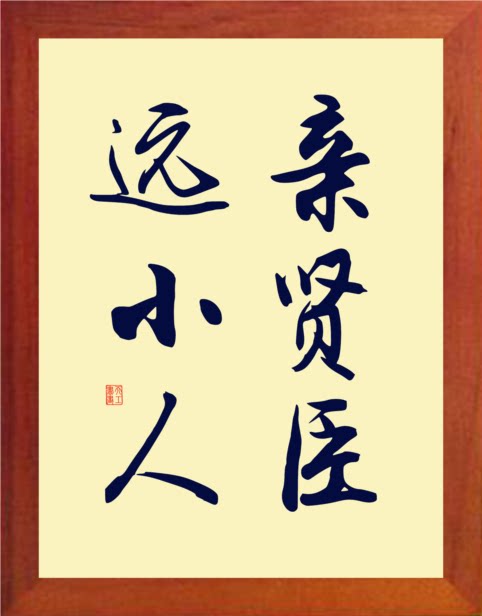 亲贤臣
远小人